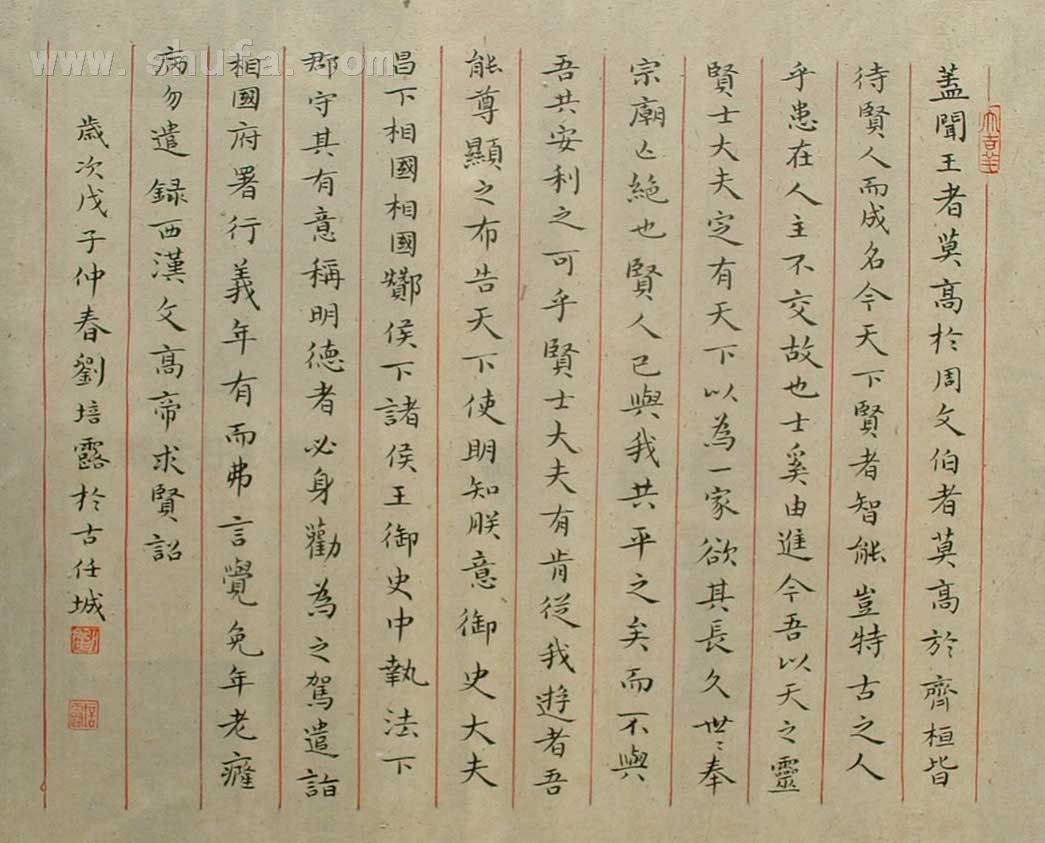 蓋聞王者莫高於周文伯者莫高於齊桓皆
待賢人而成名今天下賢者智能豈特古之人
乎患在人主不交故也士奚由進今吾以天之靈
賢士大夫定有天下以為一家欲其長久世〻奉
宗廟亡絕也賢人已與我共平之矣而不與
吾共安利之可乎賢士大夫有肯從我遊者吾
能尊顯之布告天下使明知朕意御史大夫
昌下相國相國酇侯下諸侯王御史中執法下
郡守其有意稱明德者必身勸為之駕遣詣
相國府署行義年有而弗言覺免年老癃
病勿遣 錄西漢文高帝求賢詔
歲次戊子仲春劉培露於古任城
www.shufa.com